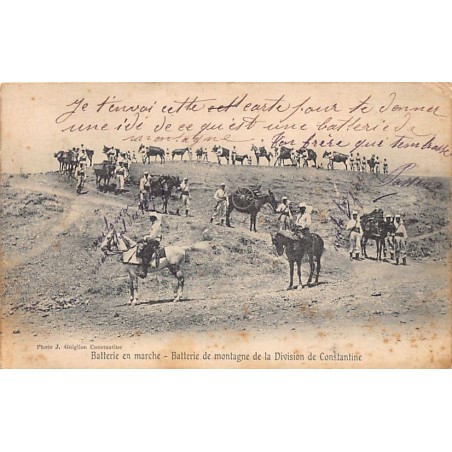 Je t'envoi cette carte pour te donner
une idé de ce qu'est une batterie da
montagne Ton frère qui t'embrasse
Photo J. Guiglion Constantine
Batterie en marche - Batterie de montagne de la Division de Constantine